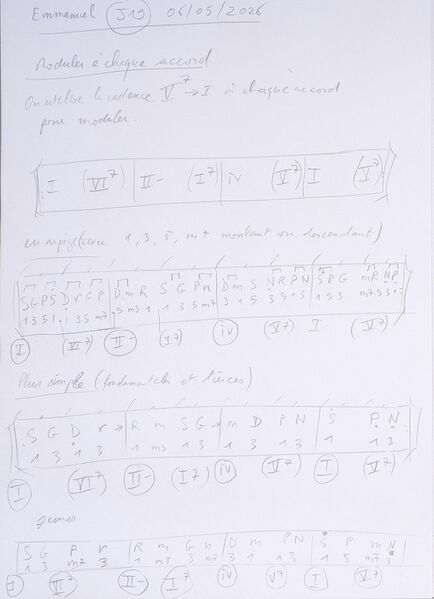 Emmanuel J19 06/05/2026
Moduler à chaque accord
On utilise la cadence V7 → I à chaque accord
pour moduler :
I (VI7) II- (I7) iv (V7) I (V7)
en arpège (avec 1, 3, 5, m7 montant ou descendant)
S G P S D r G P D m R S G P n D m S N R P N S P G m R N P
I (VI7) II- (I7) iv (V7) I (V7)
Plus simple (fondamentales et tierces)
S G D r → R m S G → m D P N S P N
1 3 1 3 1 3 1 3 1 3 1 3 1 1 3
I (VI7) II- (I7) iv (V7) I (V7)
S G P r R m G n D m P N S P m N
1 3 m7 3 1 m3 3 m7 3 1 1 3 1 5 m7 3
I II- I7 iv V7 I V7